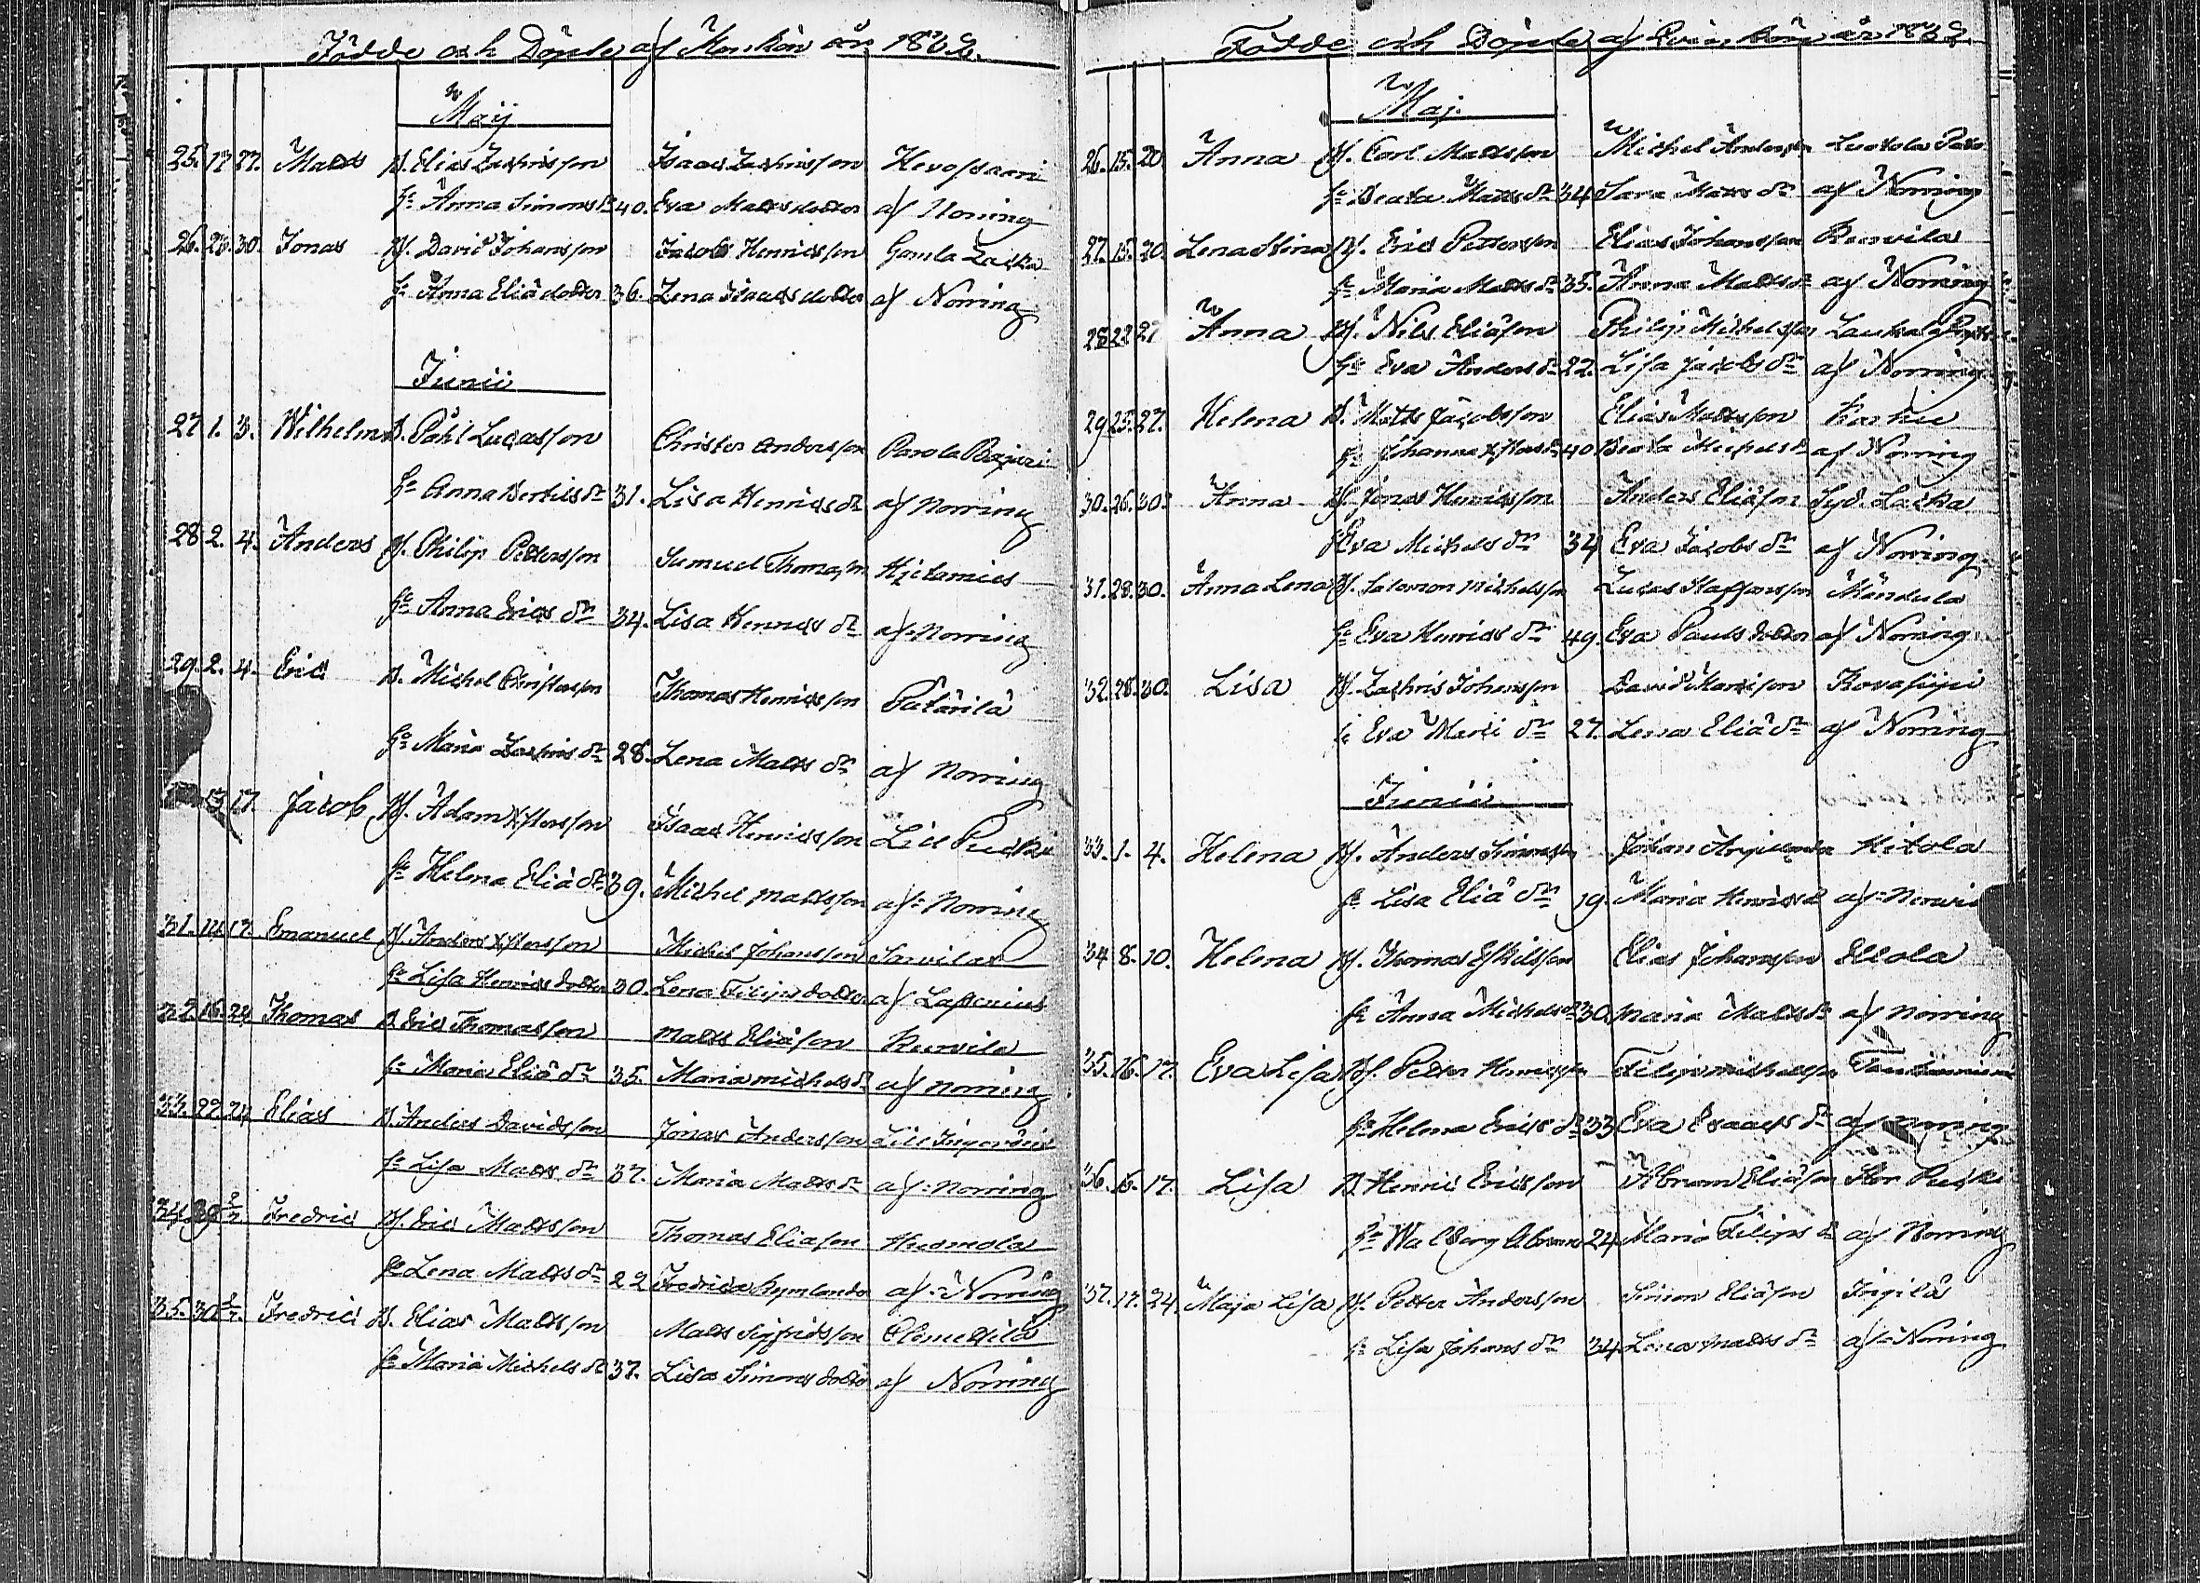 Födde och Döpte af Mankön år 1832.
Maij
25. 17 27. Matts B. Elias Zachrisson Isaac Zachrisson Hevossaari
h: Anna Simons dr 40. Eva Mattsdotter af Norring
26. 26. 30. Jonas B. David Johansson Jacob Henricsson Gamla Lacka
h: Anna Eliädotter 36. Lena Isaacsdotter af Norring
Junii
27 1. 3. Wilhelm B. Påhl Lucasson Christer Andersson Parola
h: Anna Bertils dr 31. Lisa Henrics dr af Norring
28 2. 4. Anders B. Philip Pettersson Samuel Thomasson
h: Anna Erics dr 34. Lisa Henrics dr af Norring
29. 2. 4. Eric B. Michel Christersson Thomas Henricsson Patärilä
h: Maria Zachris dr 28. Lena Matts dr af Norring
17. Jacob B. Adam Xstersson Isaac Henricsson Lill Pucki
h: Helena Eliä dr 39. Michel Mattsson af Norring
31. 14. 17. Emanuel B. Anders Xstersson Michel Johansson Sarvilax
h: Lisa Henricsdotter 30. Lena Filipsdotter af
32. 16. 24 Thomas B. Eric Thomasson Matts Eliäson
h: Maria Eliä dr 35. Maria Michels dr af Norring
33. 22. 24 Elias B. Anders Davidsson Jonas Andersson Lill
h: Lisa Matts dr 37. Maria Matts dr af Norring
34. 29 2/7 Fredric B. Eric Mattsson Thomas Eliäson
h: Lena Matts dr 22 Fredrica af Norring
35. 30 2/7. Fredric B. Elias Mattsson Matts Sigfridsson
h: Maria Michels dr 37. Lisa Simonsdotter af Norring
Födde och Döpte af Qvinkön år 1832.
Maj.
26. 15. 20 Anna B. Carl Mattsson Michel Andersson
h: Beata Matts dr 34 Sara Matts dr af Norring
27. 15. 20. Lena Stina B. Eric Pettersson Elias Johansson
h: Maria Matts dr 35. Anna Matts dr af Norring
28 22 27 Anna B. Nils Eliäson Philip Michelsson
h: Eva Anders dr 22. Lisa Jacobs dr af Norring
29 25. 27. Helena B. Matts Jacobsson Elias Mattsson
h: Johanna Xsters dr 40 Beata Michels dr af Norring
30. 26. 30. Anna B. Jonas Henricsson Anders Eliäson Syd. Lacka
h: Eva Michels dr 34 Eva Jacobs dr af Norring
31. 28. 30. Anna Lena B. Salomon Michelsson Lucas Staffansson Mändula
h: Eva Henrics dr 49. Eva Pauls dotter af Norring
32. 28. 30. Lisa B. Zachris Johansson David Martison
h: Eva Marti dr 27. Lena Eliä dr af Norring
Junii
33. 1. 4. Helena B. Anders Simonsson Johan
h: Lisa Eliä dr 19. Maria Henrics dr af
34 8. 10. Helena B. Thomas Eskilsson Elias Johansson
h: Anna Michels dr 30. Maria Matts dr af Norring
35. 16. 17. Eva Lisa B. Petter Henricsson Filip Michelsson
h: Helena Erics dr 33 Eva Isaacs dr af Norring
36. 15. 17. Lisa B. Henric Ericsson Abram Eliäson Stor Pucki
h: Walborg Abrams 24 Maria Filips dr af Norring
37. 17. 24 Maja Lisa B. Petter Andersson Simon Eliäson
h: Lisa Johans dr 34 Lena Matts dr af Norring